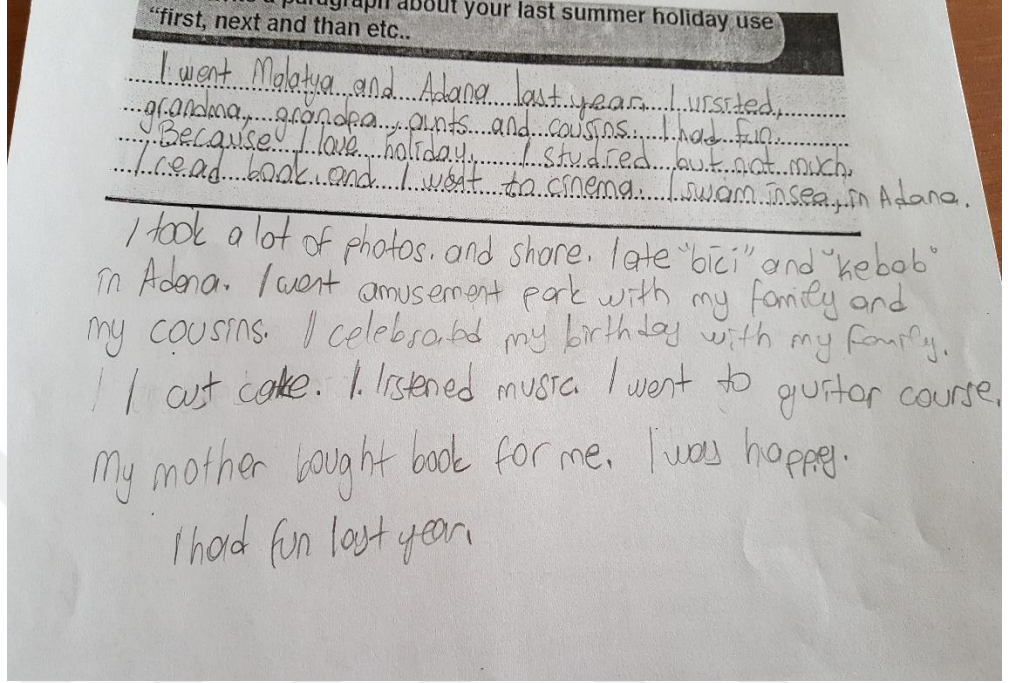 a paragraph about your last summer holiday use
"first, next and than etc..
I went Malatya and Adana last year. I visited,
grandma, grandpa, aunts and cousins. I had fun.
Because I love holiday. I studied but not much.
I read book and I went to cinema. I swam in sea, in Adana.
I took a lot of photos. and share. I ate "bici" and "kebab"
in Adana. I went amusement park with my family and
my cousins. I celebrated my birthday with my family.
I cut cake. I listened music. I went to guitar course.
My mother bought book for me. I was happy.
I had fun last year.